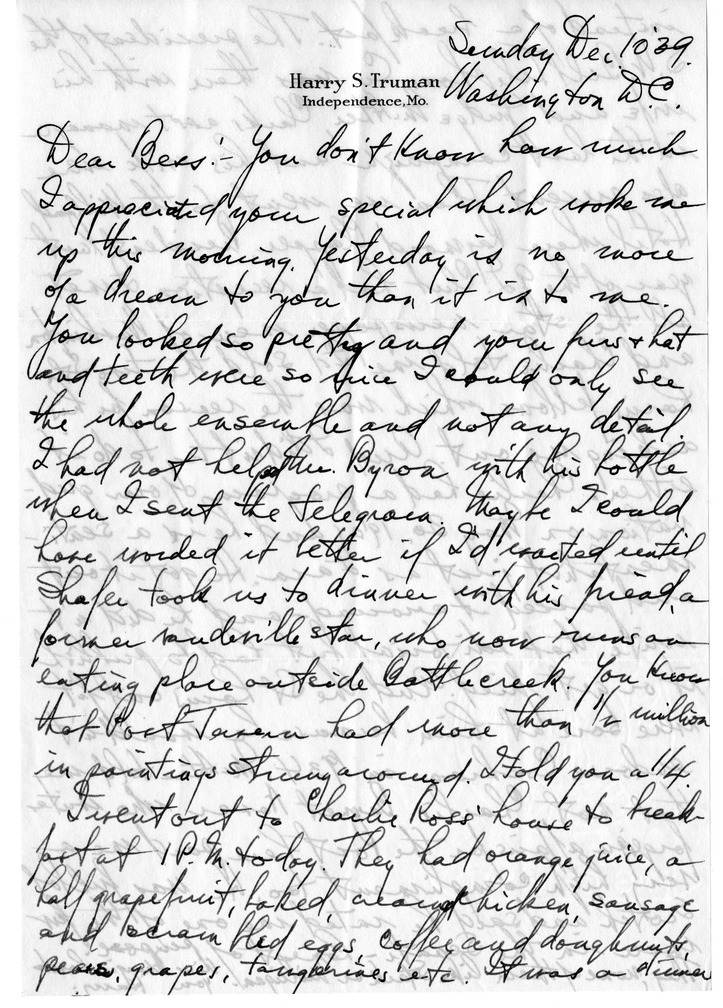 Sunday Dec. 10 '39.
Harry S. Truman
Independence, Mo.
Washington D.C.
Dear Bess:- You don't know how much
I appreciated your special which woke me
up this morning. Yesterday is no more
of a dream to you than it is to me.
You looked so pretty and your furs & hat
and teeth were so nice I could only see
the whole ensemble and not any detail.
I had not helped Mr. Byron with his bottle
when I sent the telegram. Maybe I could
have worded it better if I'd waited until
Shafer took us to dinner with his friend, a
former vaudeville star, who now runs an
eating place outside Battlecreek. You know
that Post Tavern had more than 1/2 million
in paintings strung around. I told you a 1/4.
I went out to Charlie Ross' house to break-
fast at 1 P.M. today. They had orange juice, a
half grapefruit, baked, creamed chicken, sausage
and scrambled eggs, coffee and doughnuts,
pears, grapes, tangerines etc. It was a dinner